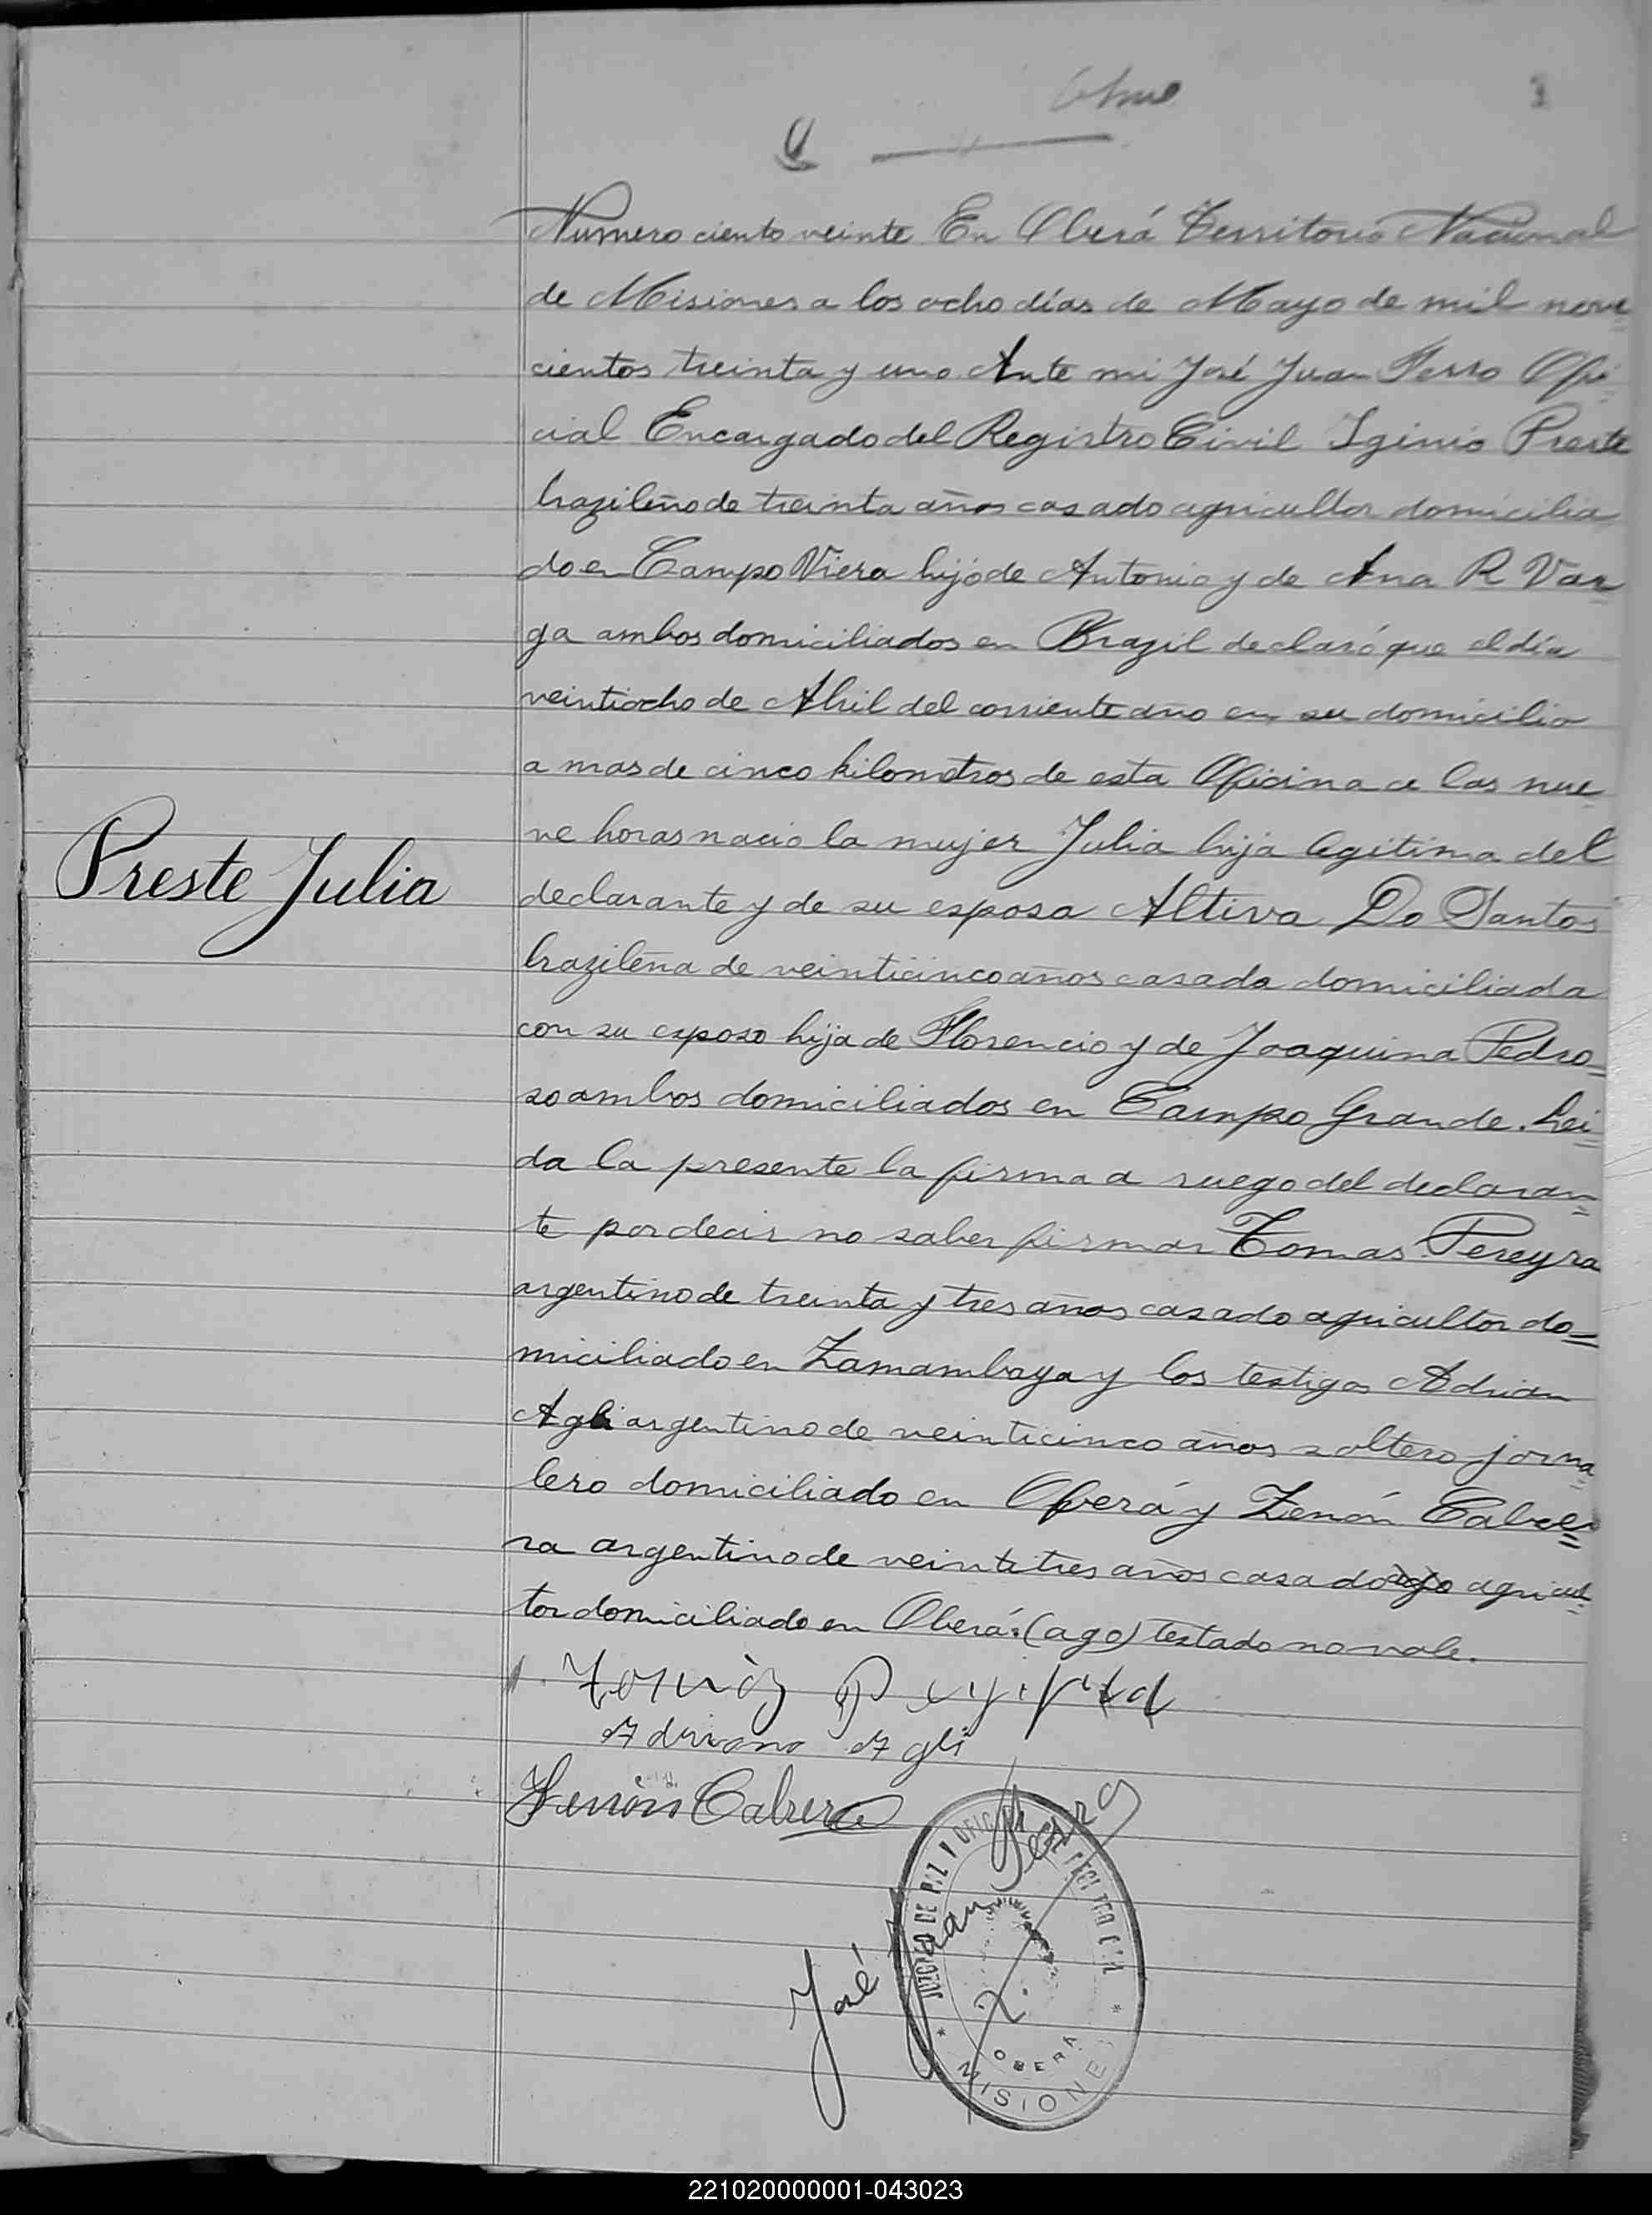 3
Numero ciento veinte En Oberá Territorio Nacional
de Misiones a los ocho días de Mayo de mil nove
cientos treinta y uno Ante mi José Juan Ferro Ofi
cial Encargado del Registro Civil Iginio Preste
brazileño de treinta años casado agricultor domicilia
do en Campo Viera hijo de Antonio y de Ana R Var
ga ambos domiciliados en Brazil declaró que el día
veintiocho de Abril del corriente año en su domicilio
a mas de cinco kilometros de esta Oficina a las nue
ve horas nacio la mujer Julia hija legitima del
Preste Julia
declarante y de su esposa Altiva Do Santos
brazileña de veinticinco años casada domiciliada
con su esposo hija de Florencio y de Joaquina Pedro=
so ambos domiciliados en Campo Grande. Lei=
da la presente la firma a ruego del declaran=
te por decir no saber firmar Tomas Pereyra
argentino de treinta y tres años casado agricultor do=
miciliado en Zamambaya y los testigos Adrian
Agli argentino de veinticinco años soltero jorna
lero domiciliado en Oberá y Zenón Cabre=
ra argentino de veintitres años casado ago agricul
tor domiciliado en Oberá.(ago) testado no vale.
Adriano Agli
Zenón Cabrera
José Juan Ferro
JUZGADO DE PAZ Y OFICINA
OBERÁ
MISIONES
221020000001-043023